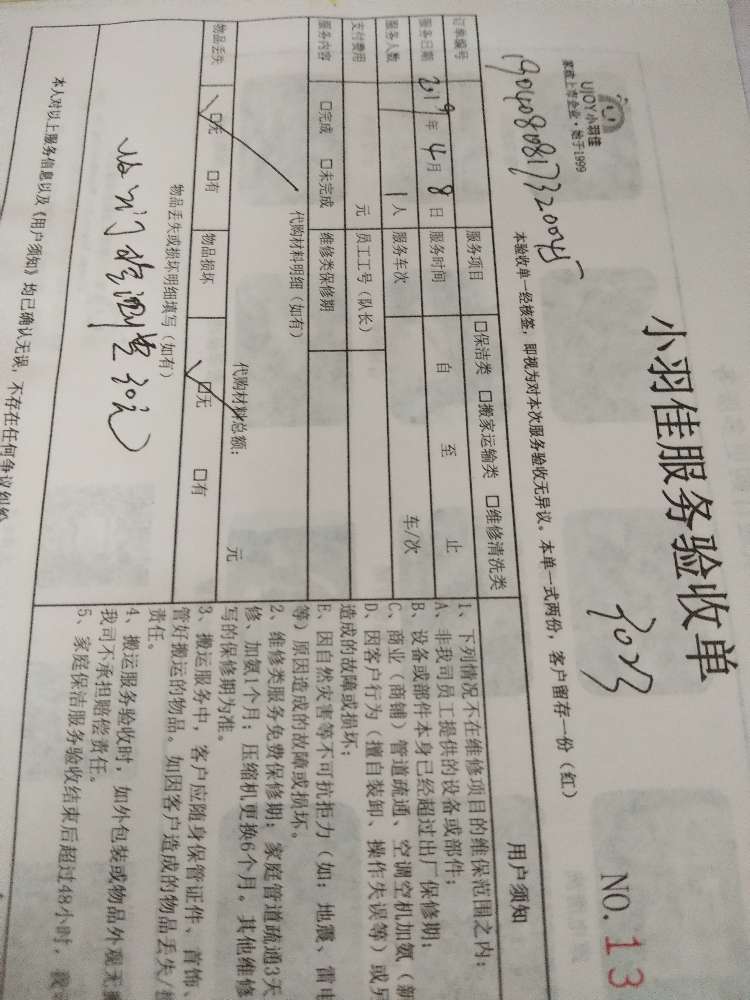 UJOY小羽佳
家政上市企业·始于1999
小羽佳服务验收单
3023
NO. 13
本验收单一经核签，即视为对本次服务验收无异议。本单一式两份，客户留存一份（红）
订单编号
服务项目 □保洁类 □搬家运输类 □维修清洗类
服务日期 2019年4月8日 服务时间 自 至 止
服务人数 1人 服务车次 车/次
支付费用 元 员工工号（队长）
服务内容 □完成 □未完成 维修类保修期
代购材料明细（如有）
代购材料总额： 元
物品丢失 □无 □有 物品损坏 □无 □有
物品丢失或损坏明细填写（如有）
检测费30元
本人对以上服务信息以及《用户须知》均已确认无误，不存在任何争议纠纷
用户须知
1、下列情况不在维修项目的维保范围之内：
A、非我司员工提供的设备或部件；
B、设备或部件本身已经超过出厂保修期；
C、商业（商铺）管道疏通、空调空机加氨（新
D、因客户行为（擅自装卸、操作失误等）或另
造成的故障或损坏；
E、因自然灾害等不可抗拒力（如：地震、雷电
等）原因造成的故障或损坏。
2、维修类服务免费保修期：家庭管道疏通3天
修、加氨1个月；压缩机更换6个月。其他维修
写的保修期为准。
3、搬运服务中，客户应随身保管证件、首饰、
管好搬运的物品。如因客户造成的物品丢失/
责任。
4、搬运服务验收时，如外包装或物品外观无
我司不承担赔偿责任。
5、家庭保洁服务验收结束后超过48小时，我